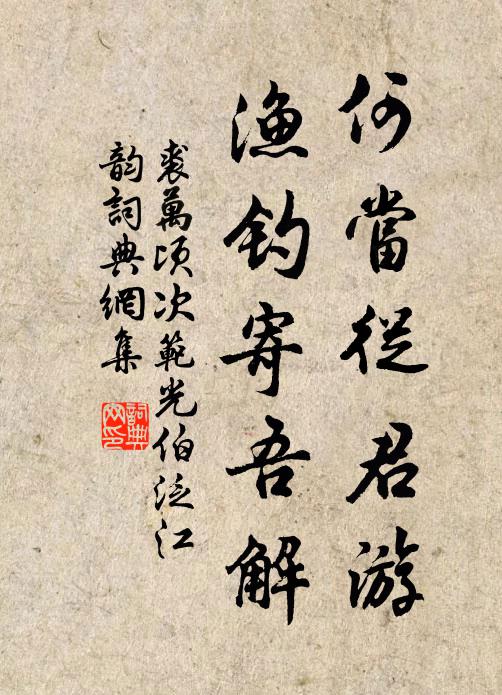 何當從君游
漁釣寄吾解
裘萬頃次範光伯泛江
韵詞典網集
詞典網印